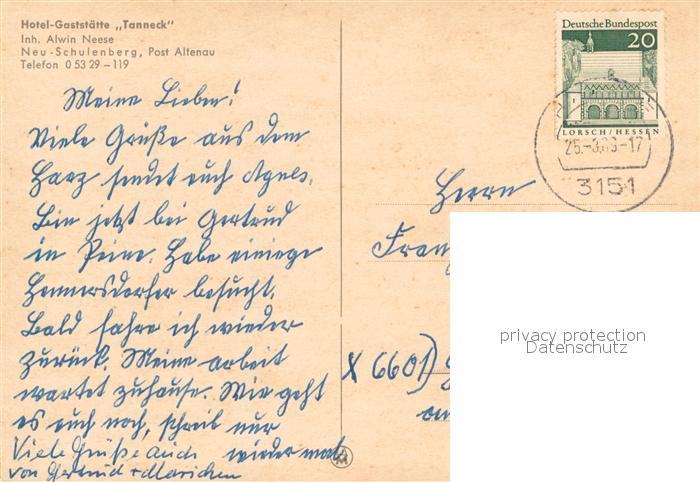 Hotel-Gaststätte „Tanneck"
Inh. Alwin Neese
Neu-Schulenberg, Post Altenau
Telefon 0 53 29 – 119
Meine Lieben!
Viele Grüße aus dem
Harz sendet euch Agnes.
Bin jetzt bei Gertrud
in Peine. Habe einiege
Hennersdorfer besucht.
Bald fahre ich wieder
zurück. Meine arbeit
wartet zuhause. Wie geht
es euch noch, schreib nur
wieder mal
Viele Grüße auch
von Gertrud + Mariechen
Deutsche Bundespost
20
LORSCH/HESSEN
25.-3.69-17
3151
Herrn
X 6601)
privacy protection
Datenschutz